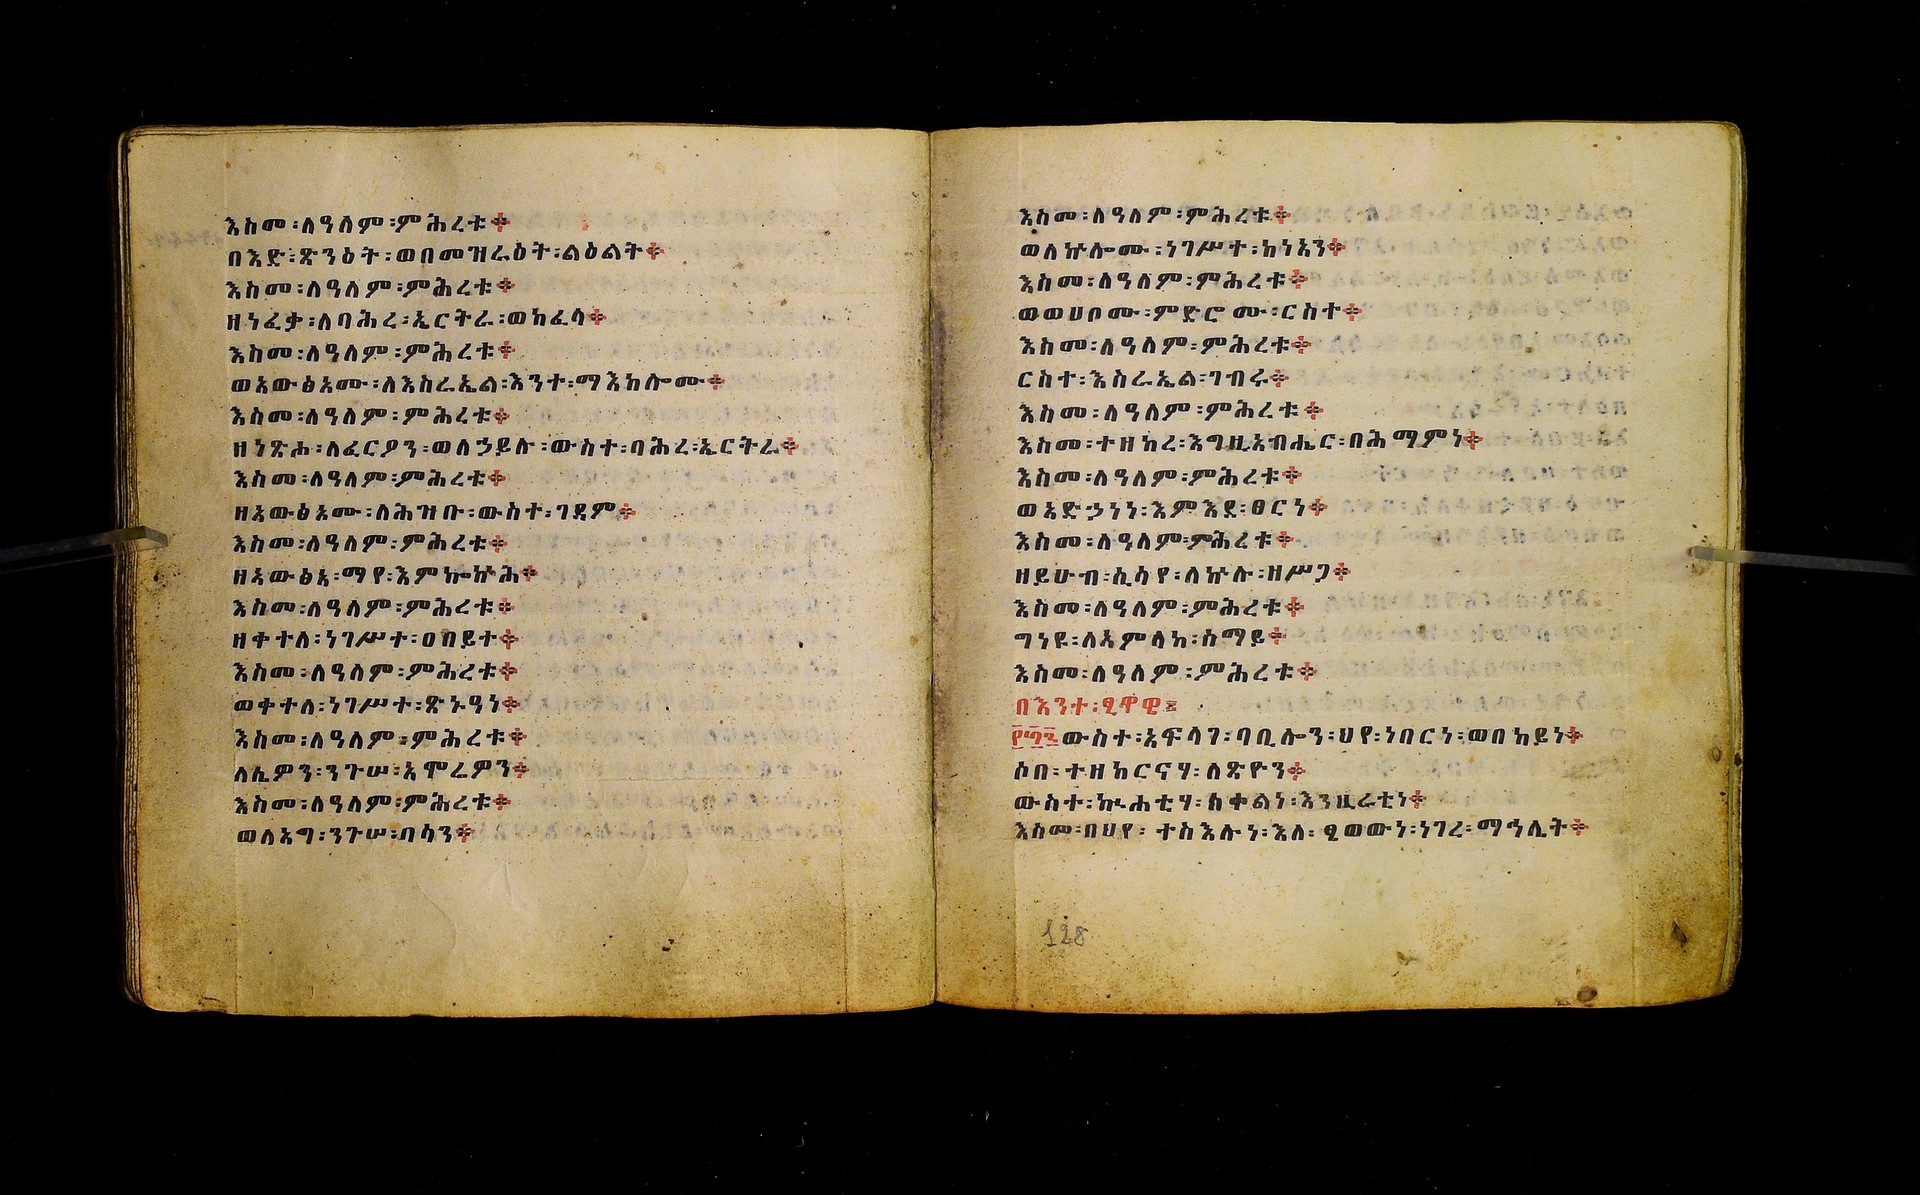 እስመ፡ለዓለም፡ምሕረቱ፨
በእድ፡ጽንዕት፡ወበመዝራዕት፡ልዕልት፨
እስመ፡ለዓለም፡ምሕረቱ፨
ዘነፈቃ፡ለባሕረ፡ኤርትራ፡ወከፈላ፨
እስመ፡ለዓለም፡ምሕረቱ፨
ወአውፅአሙ፡ለእስራኤል፡እንተ፡ማእከሎሙ፨
እስመ፡ለዓለም፡ምሕረቱ፨
ዘነጽሖ፡ለፈርዖን፡ወለኃይሉ፡ውስተ፡ባሕረ፡ኤርትራ፨
እስመ፡ለዓለም፡ምሕረቱ፨
ዘአውፅአሙ፡ለሕዝቡ፡ውስተ፡ገዳም፨
እስመ፡ለዓለም፡ምሕረቱ፨
ዘአውፅአ፡ማየ፡እምኰኵሕ፨
እስመ፡ለዓለም፡ምሕረቱ፨
ዘቀተለ፡ነገሥተ፡ዐበይተ፨
እስመ፡ለዓለም፡ምሕረቱ፨
ወቀተለ፡ነገሥተ፡ጽኑዓነ፨
እስመ፡ለዓለም፡ምሕረቱ፨
ለሴዎን፡ንጉሠ፡አሞሬዎን፨
እስመ፡ለዓለም፡ምሕረቱ፨
ወለአግ፡ንጉሠ፡ባሳን፨
እስመ፡ለዓለም፡ምሕረቱ፨
ወለኵሎሙ፡ነገሥተ፡ከነአን፨
እስመ፡ለዓለም፡ምሕረቱ፨
ወወሀቦሙ፡ምድሮሙ፡ርስተ፨
እስመ፡ለዓለም፡ምሕረቱ፨
ርስተ፡እስራኤል፡ገብሩ፨
እስመ፡ለዓለም፡ምሕረቱ፨
እስመ፡ተዘከረ፡እግዚአብሔር፡በሕማምነ፨
እስመ፡ለዓለም፡ምሕረቱ፨
ወአድኃነነ፡እምእደ፡ፀርነ፨
እስመ፡ለዓለም፡ምሕረቱ፨
ዘይሁብ፡ሲሳየ፡ለኵሉ፡ዘሥጋ፨
እስመ፡ለዓለም፡ምሕረቱ፨
ግነዩ፡ለአምላከ፡ሰማይ፨
እስመ፡ለዓለም፡ምሕረቱ፨
በእንተ፡ፂዋዌ፡፡
፻፴፮ውስተ፡አፍላገ፡ባቢሎን፡ህየ፡ነበርነ፡ወበከይነ፨
ሶበ፡ተዘከርናሃ፡ለጽዮን፨
ውስተ፡ኲሐቲሃ፡ሰቀልነ፡እንዚራቲነ፨
እስመ፡በህየ፡ተስእሉነ፡እለ፡ፄወውነ፡ነገረ፡ማኅሌት፨
128